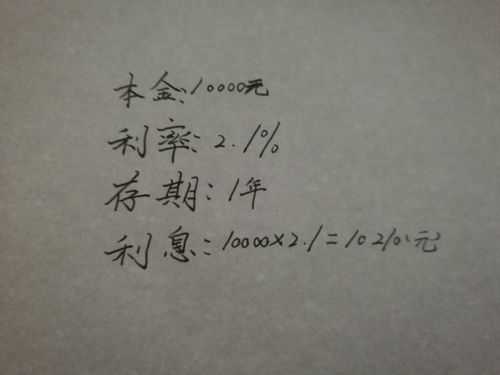 本金:10000元
利率:2.1%
存期:1年
利息:10000×2.1=10210元